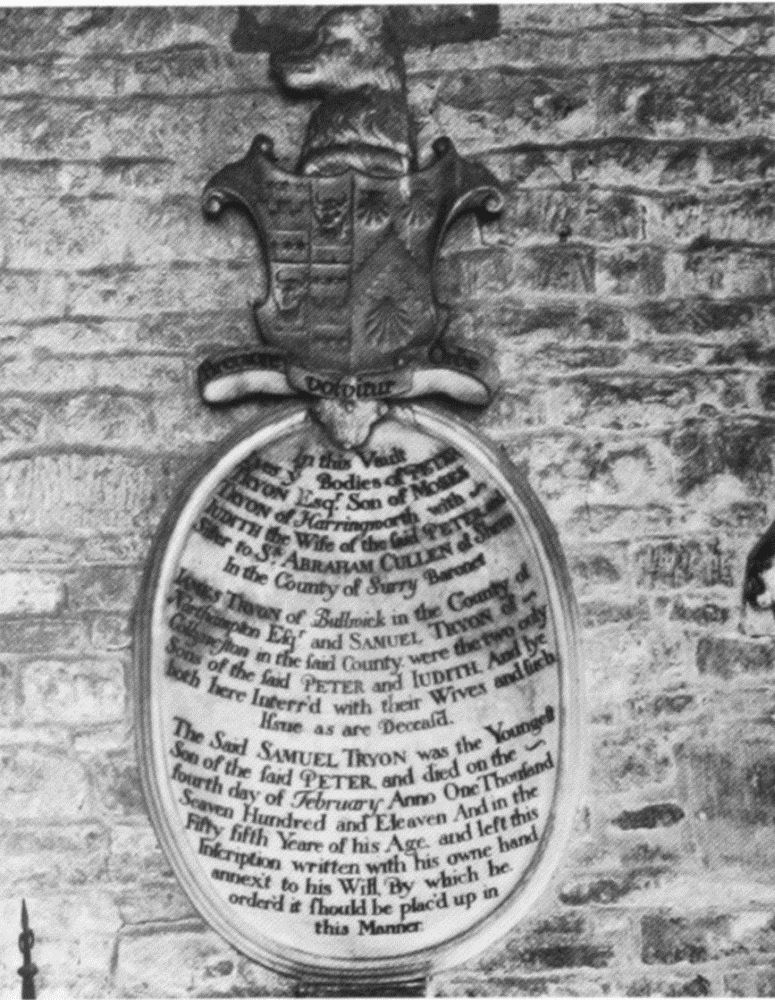 volvitur Orbe
In this Vault
Lyes yᵉ Bodies of PETER
TRYON Esqʳ Son of MOSES
TRYON of Harringworth with
IUDITH the Wife of the ſaid PETER and
Siſter to Sʳ ABRAHAM CULLEN of Sheen
In the County of Surry Baronet
IAMES TRYON of Bullwick in the County of
Northampton Eſqʳ and SAMUEL TRYON of
Collyweſton in the ſaid County, were the two only
Sons of the ſaid PETER and IUDITH. And lye
both here Interr'd with their Wives and ſuch
Iſsue as are Deceaſd.
The Said SAMUEL TRYON was the Youngeſt
Son of the ſaid PETER, and died on the
fourth day of February Anno One Thouſand
Seaven Hundred and Eleaven And in the
Fifty fifth Yeare of his Age, and left this
Inſcription written with his owne hand
annex't to his Will, By which he
order'd it ſhould be plac'd up in
this Manner.